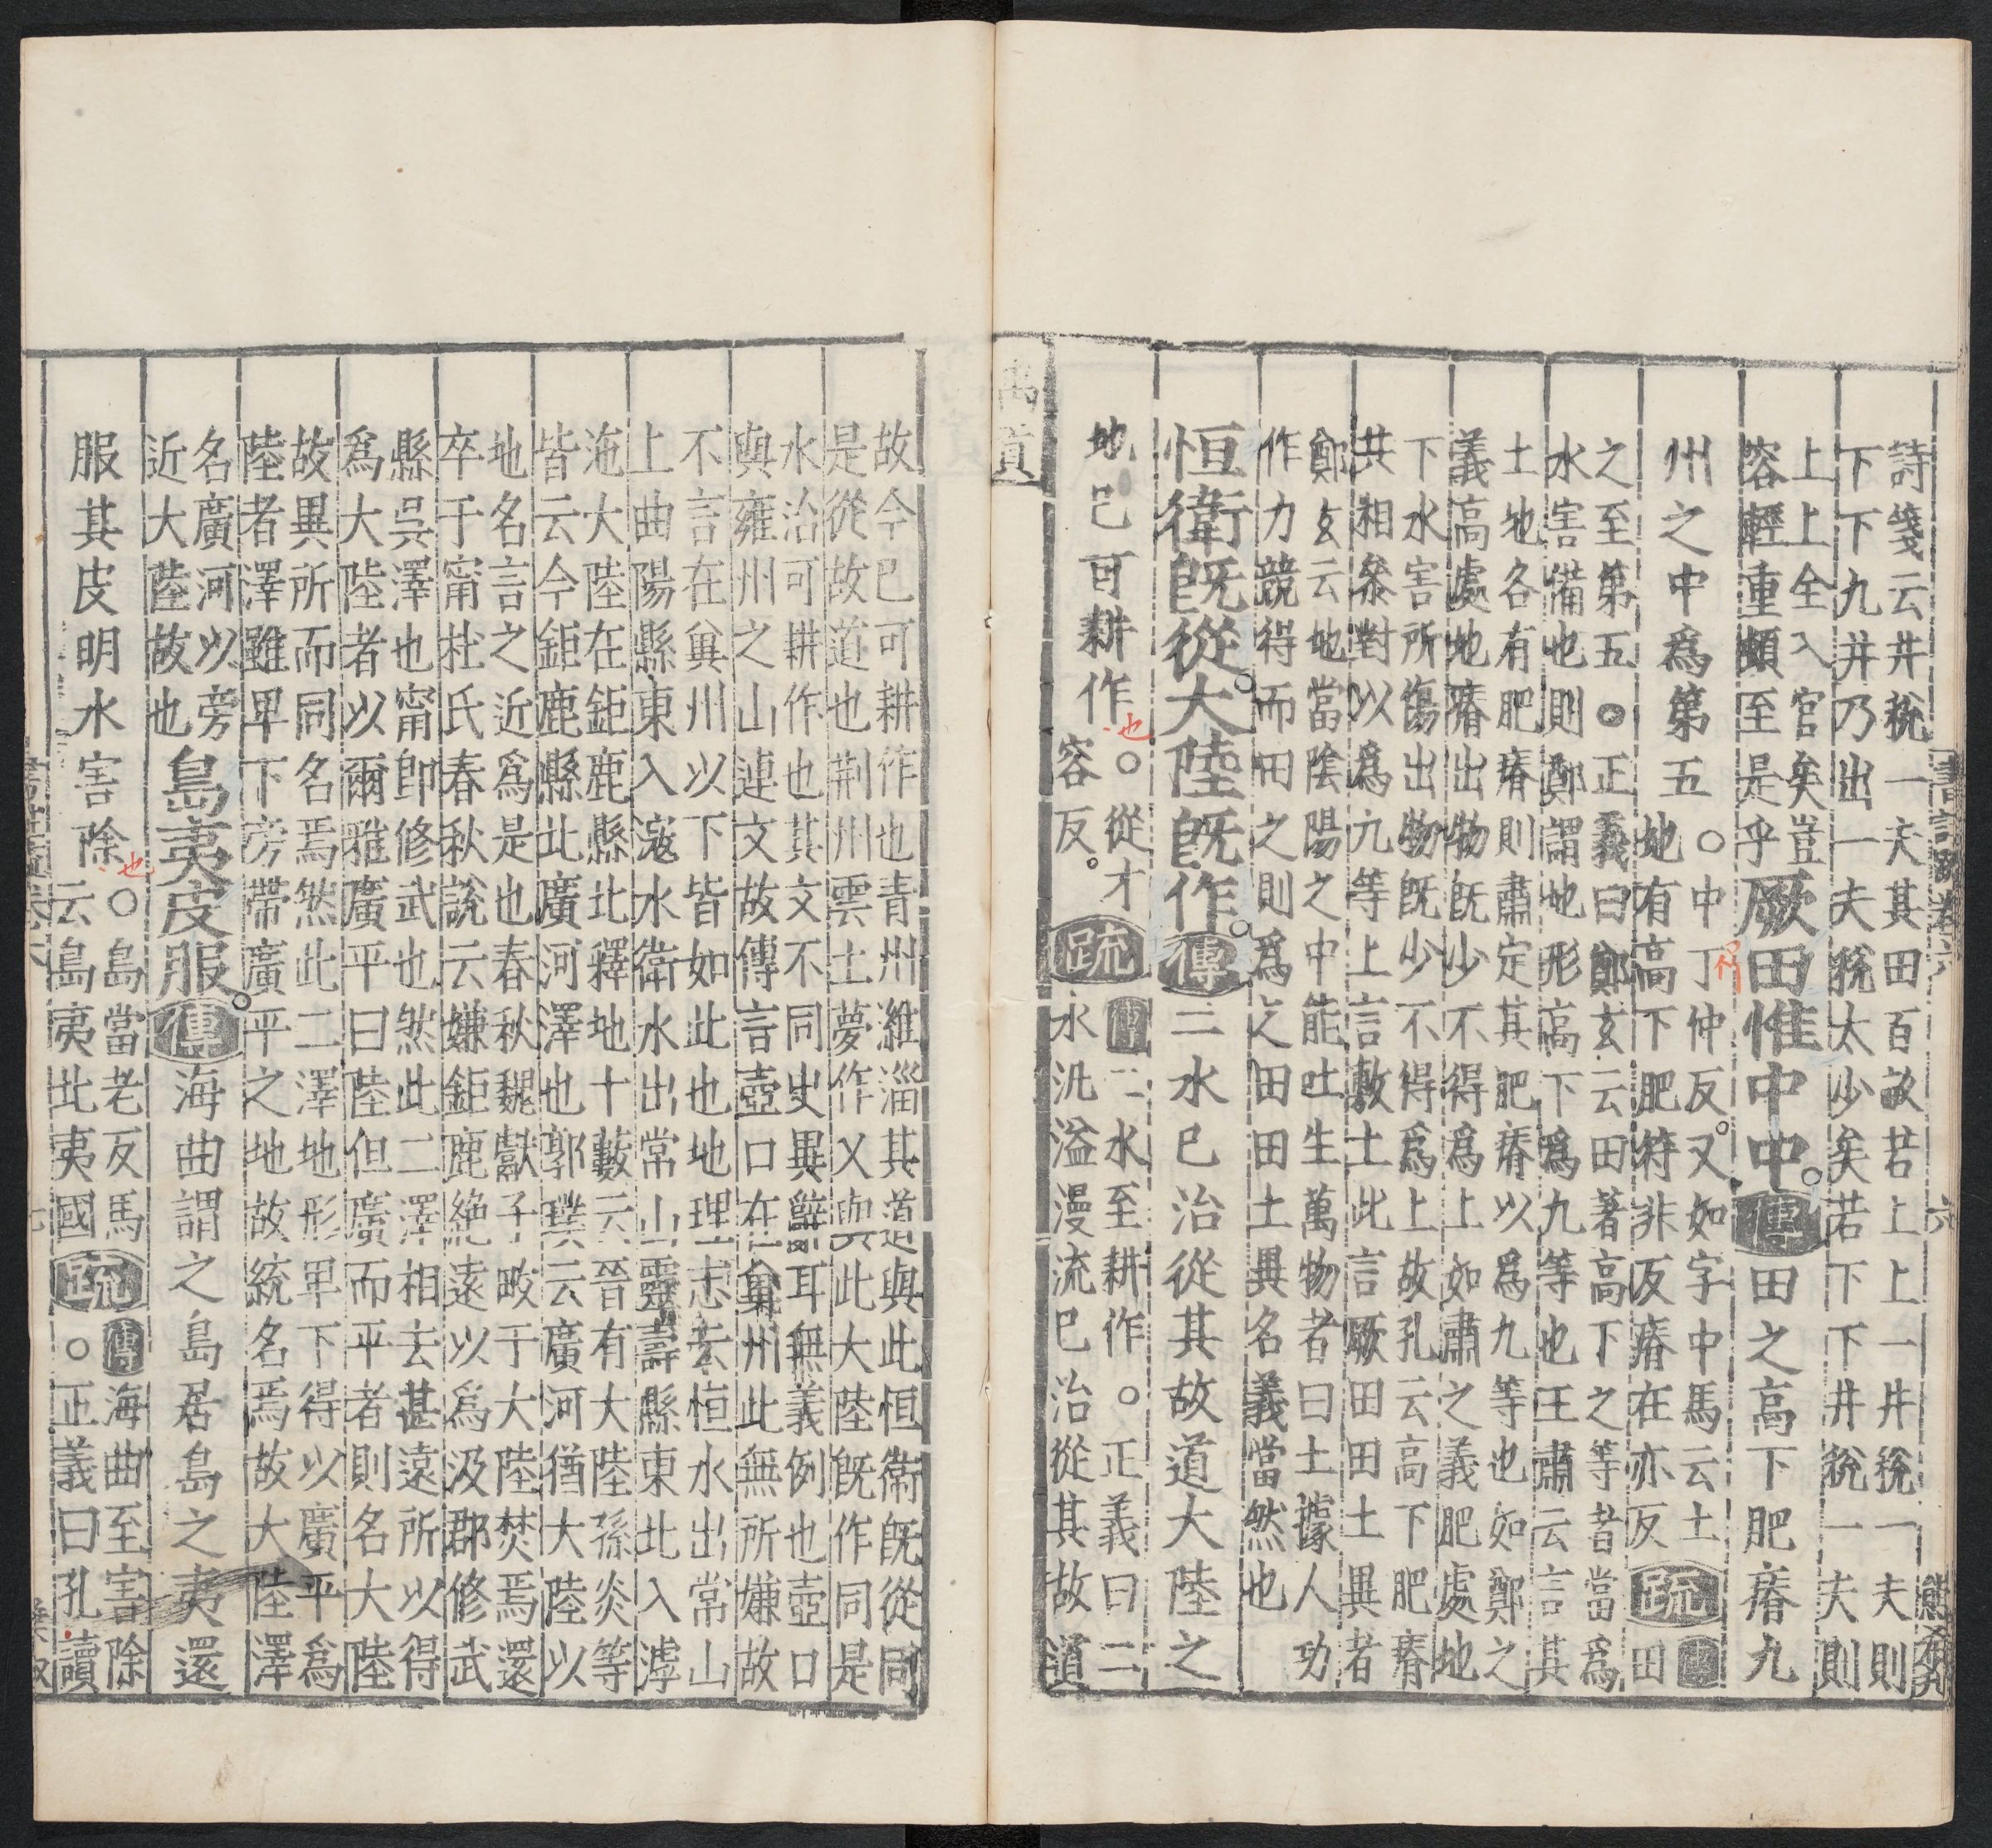 詩箋云井稅一夫其田百畝若上上一井稅一夫則
下下九井乃出一夫稅太少矣若下下井稅一夫則
上上全入官矣豈
容輕重頗至是乎
厥田惟中中。傳田之高下肥瘠九
州之中爲第五
○中丁仲反又如字中馬云土
地有高下肥符非反瘠在亦反
疏傳田
之至第五○正義曰鄭玄云田著高下之等者當爲
水害備也則鄭謂地形高下爲九等也王肅云言其
土地各有肥瘠則肅定其肥瘠以爲九等也如鄭之
義高處地瘠出物旣少不得爲上如肅之義肥處地
下水害所傷出物旣少不得爲上故孔云高下肥瘠
共相參對以爲九等上言敷土此言厥田田土異者
鄭玄云地當陰陽之中能吐生萬物者曰土據人功
作力競得而田之則爲之田田土異名義當然也
恒衛旣從。大陸旣作。傳二水已治從其故道大陸之
地已可耕作也
○從才
容反。
疏
傳二水至耕作○正義曰二
水汎溢漫流已治從其故道
禹貢
故今已可耕作也青州濰淄其道與此恒衛旣從同
是從故道也荆州雲土夢作乂與此大陸旣作同是
水治可耕作也其文不同史異辭耳無義例也壺口
與雍州之山連文故傳言壺口在冀州此無所嫌故
不言在冀州以下皆如此也地理志云恒水出常山
上曲陽縣東入滱水衛水出常山靈壽縣東北入滹
沲大陸在鉅鹿縣北釋地十藪云晉有大陸孫炎等
皆云今鉅鹿縣北廣河澤也郭璞云廣河猶大陸以
地名言之近爲是也春秋魏獻子畋于大陸焚焉還
卒于甯杜氏春秋說云嫌鉅鹿絶遠以爲汲郡修武
縣吳澤也甯卽修武也然此二澤相去甚遠所以得
爲大陸者以爾雅廣平曰陸但廣而平者則名大陸
故異所而同名焉然此二澤地形卑下得以廣平爲
陸者澤雖卑下旁帶廣平之地故統名焉故大陸澤
名廣河以旁
近大陸故也
島夷皮服。傳海曲謂之島居島之夷還
服其皮明水害除也
○島當老反馬
云島夷北夷國
疏
傳海曲至害除
○正義曰孔讀